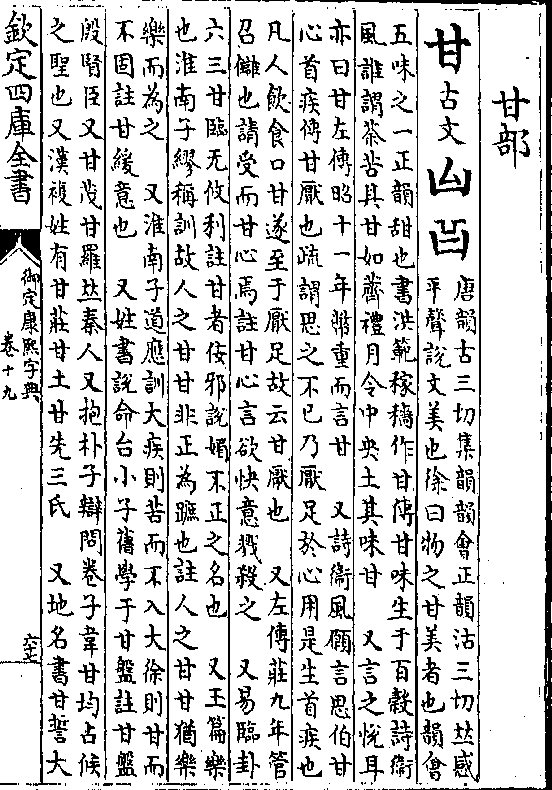 甘部
甘古文𠙴𠙵唐韻古三切集韻韻會正韻沽三切𠀤感
平聲說文美也徐曰物之甘美者也韻會
五味之一正韻甜也書洪範稼穡作甘傳甘味生于百穀詩衞
風誰謂荼苦其甘如薺禮月令中央土其味甘 又言之悅耳
亦曰甘左傳昭十一年幣重而言甘 又詩衞風願言思伯甘
心首疾傳甘厭也疏謂思之不已乃厭足於心用是生首疾也
凡人飲食口甘遂至于厭足故云甘厭也 又左傳莊九年管
召讎也請受而甘心焉註甘心言欲快意戮殺之 又易臨卦
六三甘臨无攸利註甘者佞邪說媚不正之名也 又玉篇樂
也淮南子繆稱訓故人之甘甘非正為蹠也註人之甘甘猶樂
樂而為之 又淮南子道應訓大疾則苦而不入大徐則甘而
不固註甘緩意也 又姓書說命台小子舊學于甘盤註甘盤
殷賢臣又甘茂甘羅𠀤秦人又抱朴子辯問卷子韋甘均占候
之聖也又漢複姓有甘莊甘土甘先三氏 又地名書甘誓大
欽定四庫全書
御定康熙字典
卷十九
六十